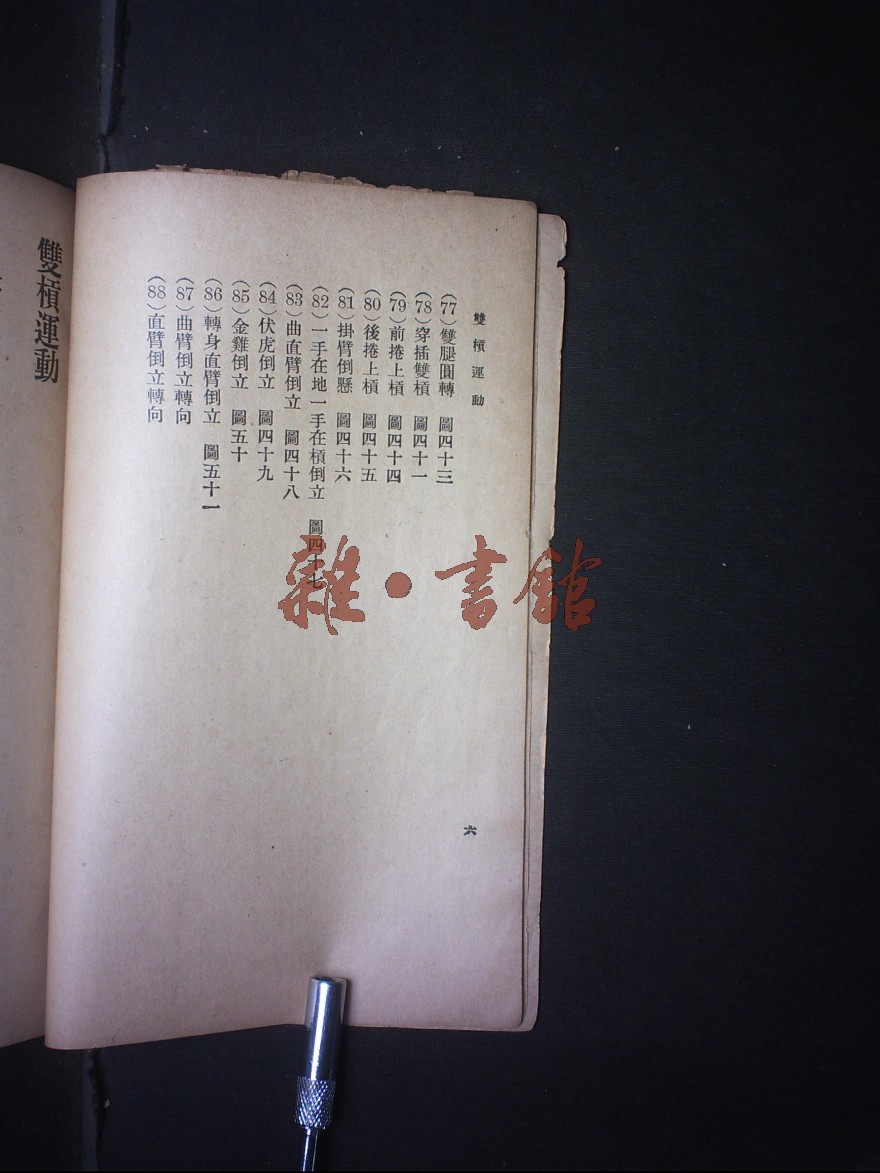 雙槓運動
(77)雙腿圓轉 圖四十三
(78)穿插雙槓 圖四十一
(79)前捲上槓 圖四十四
(80)後捲上槓 圖四十五
(81)掛臂倒懸 圖四十六
(82)一手在地一手在槓倒立 圖四十七
(83)曲直臂倒立 圖四十八
(84)伏虎倒立 圖四十九
(85)金雞倒立 圖五十
(86)轉身直臂倒立 圖五十一
(87)曲臂倒立轉向
(88)直臂倒立轉向
六
雙槓運動
雜·書館